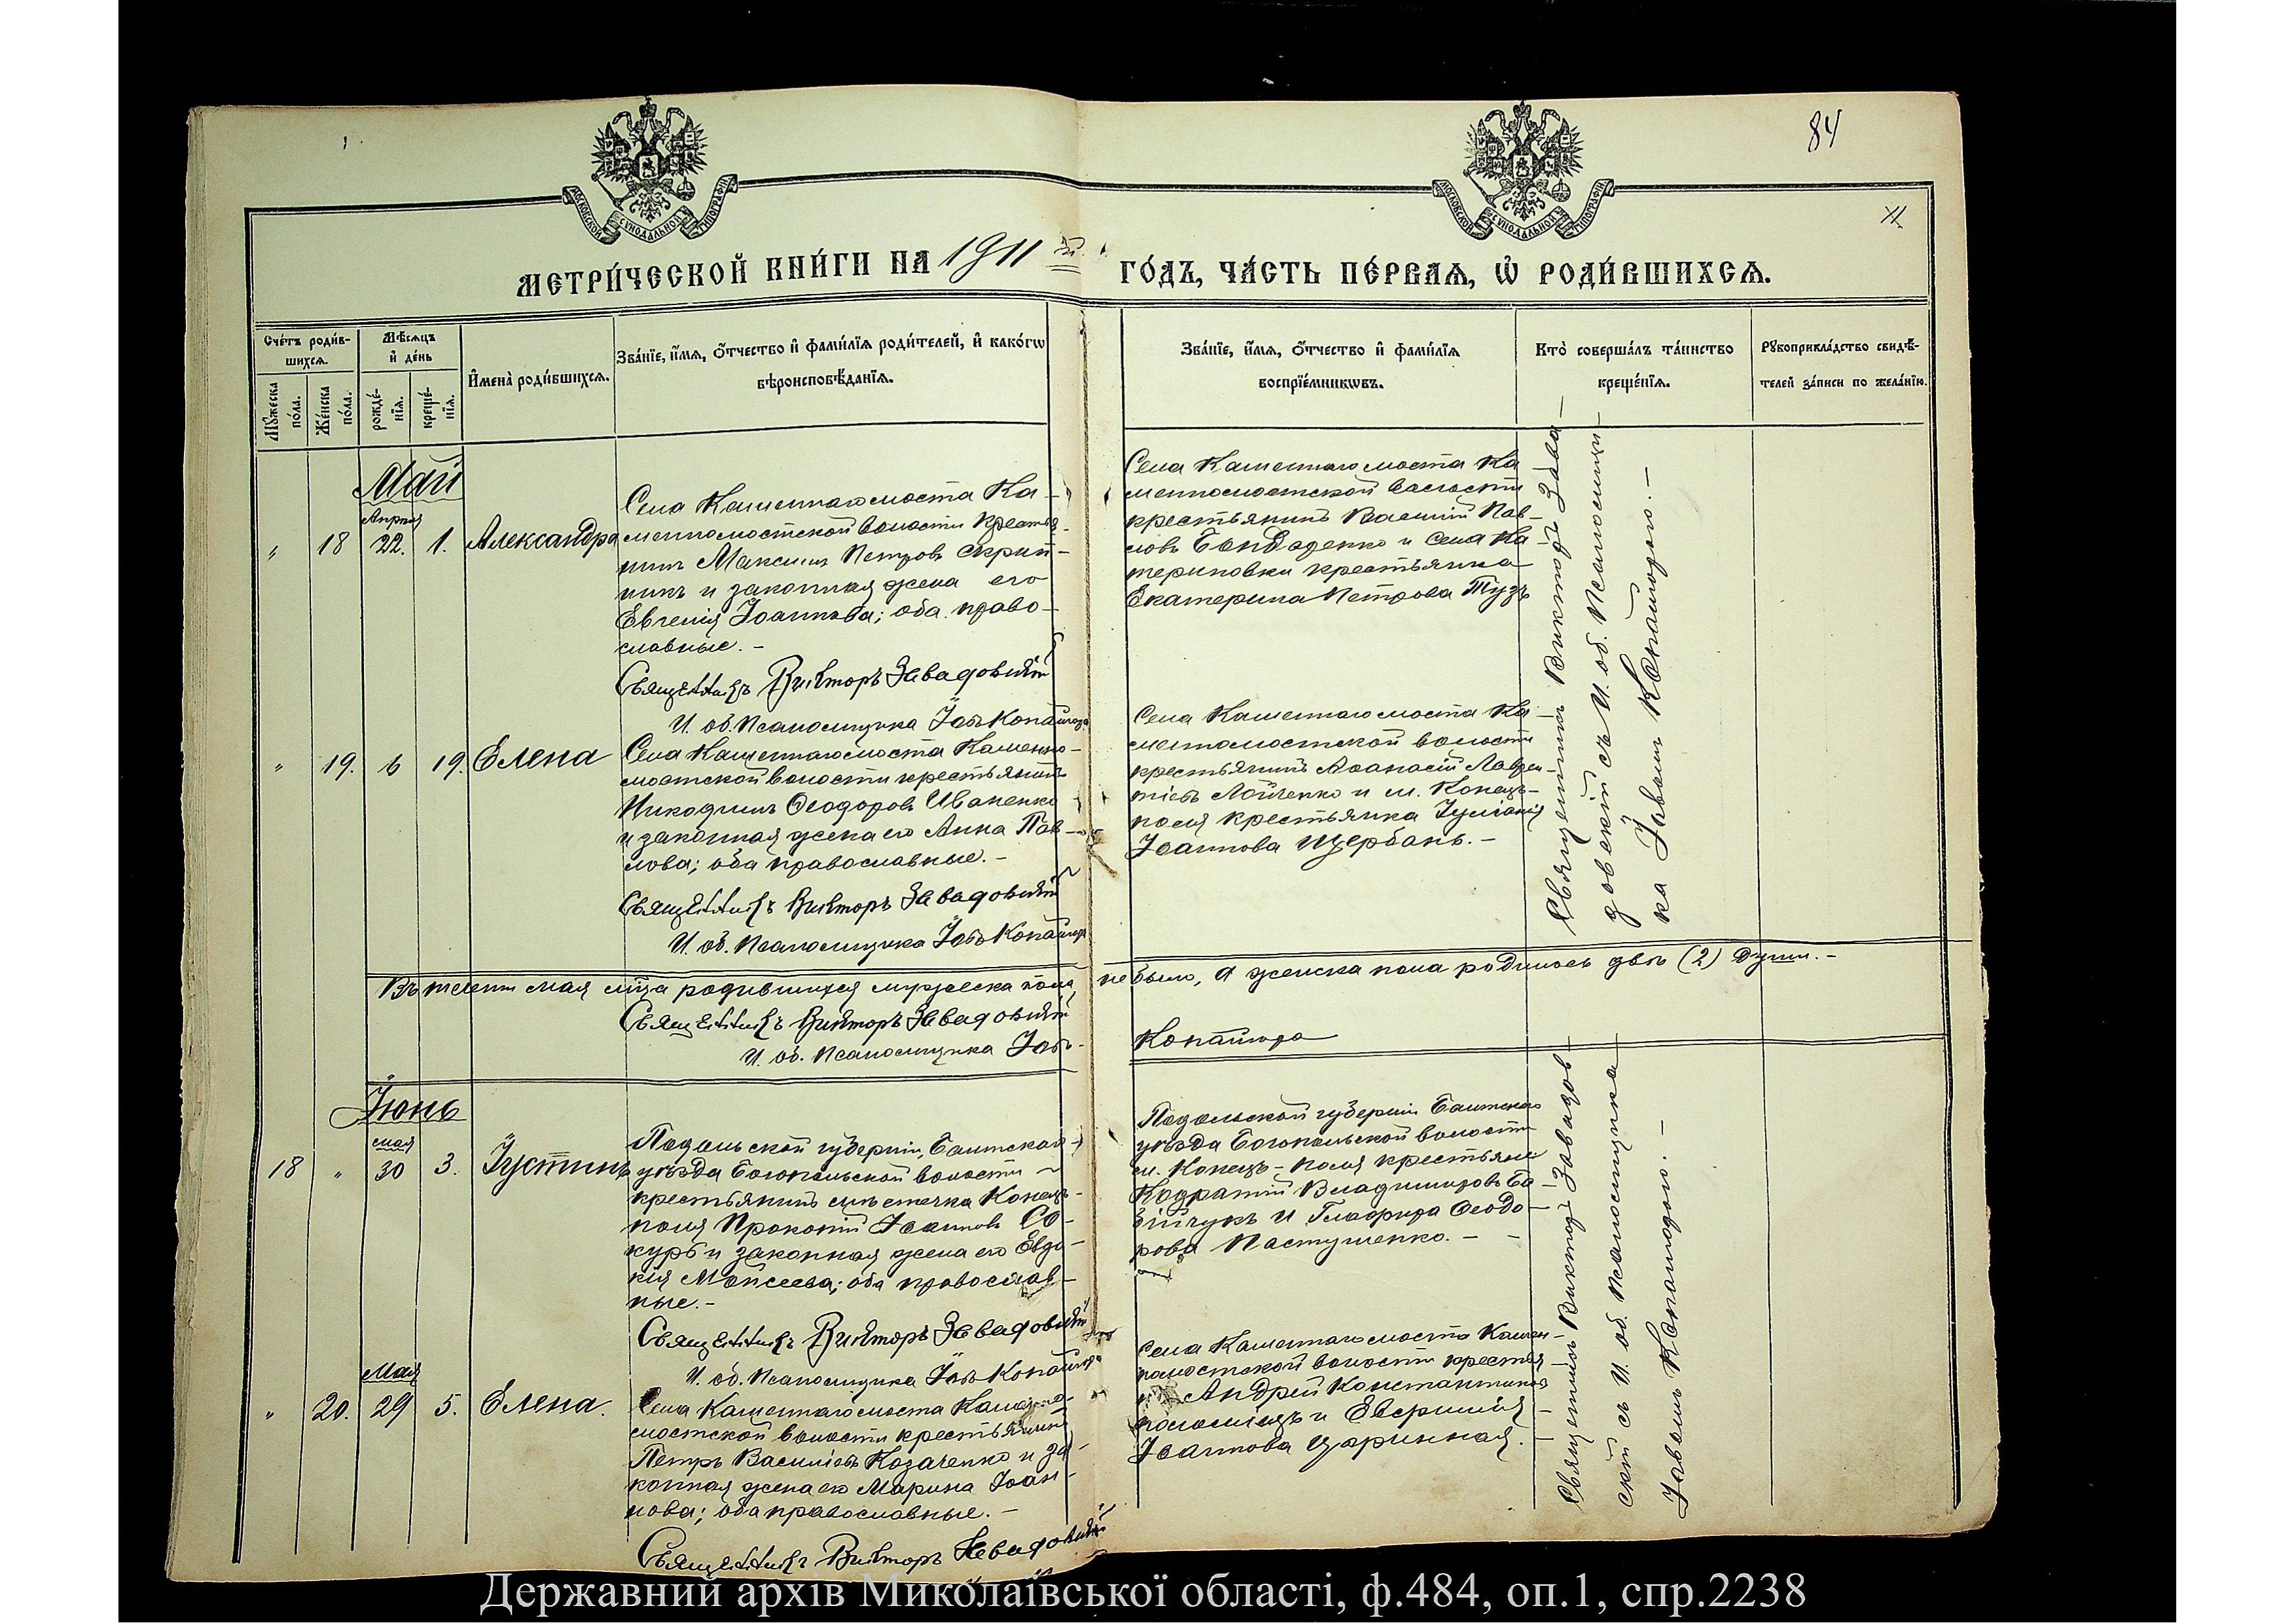 84
МОСКОВСКОЙ СѴНОДАЛЬНОЙ ТИПОГРАФІИ
МОСКОВСКОЙ СѴНОДАЛЬНОЙ ТИПОГРАФІИ
МЕТРИ́ЧЕСКОЙ КНИ́ГИ НА 1911 й ГО́ДЪ, ЧА́СТЬ ПЕ́РВАѦ, Ѽ РОДИ́ВШИХСѦ.
Сче́тъ роди́в-
шихсѧ.
Мꙋ́жеска по́ла.
Же́нска по́ла.
Мѣ́сѧцъ и҆ де́нь
рожде́-нїѧ.
креще́-нїѧ.
И҆мена̀ роди́вшихсѧ.
Зва́нїе, и҆́мѧ, ѻ҆́тчество и҆ фамилїѧ роди́телей, и҆ како́гѡ
вѣроисповѣ́данїѧ.
Зва́нїе, и҆́мѧ, ѻ҆́тчество и҆ фами́лїѧ
воспрїе́мникѡвъ.
Кто̀ соверша́лъ та́инство
креще́нїѧ.
Рꙋкоприкла́дство свидѣ́-
телей за́писи по жела́нїю.
Май
Апрѣля
" 18 22. 1. Александра
Села Каменнаго моста Ка-
менномостской волости крестья-
нинъ Максимъ Петровъ Скрип-
никъ и законная жена его
Евгенія Іоаннова; оба право-
славные. -
Священникъ Викторъ Завадовскій
И. об. Псаломщика Іовъ Копайгора
Села Каменнаго моста Ка-
менномостской волости
крестьянинъ Василій Пав-
ловъ Бондаренко и села Ка-
териновки крестьянка
Екатерина Петрова Тузъ
Священникъ Викторъ Зава-
довскій съ И. об. Псаломщи-
ка Іовомъ Копайгорою. -
" 19. 6 19. Елена
Села Каменнаго моста Каменно-
мостской волости крестьянинъ
Никодимъ Ѳеодоровъ Иваненко
и законная жена его Анна Пав-
лова; оба православные. -
Священникъ Викторъ Завадовскій
И. об. Псаломщика Іовъ Копайгора
Села Каменнаго моста Ка-
менномостской волости
крестьянинъ Аѳанасій Лаврен-
тіевъ Лойченко и м. Конецъ-
поля крестьянка Іуліанія
Іоаннова Щербань. -
Въ теченіи мая м-ца родившихся мужеска пола не было, а женска пола родилось двѣ (2) души. -
Священникъ Викторъ Завадовскій
И. об. Псаломщика Іовъ Копайгора
Іюнь
мая
18 " 30 3. Іустинъ
Подольской губерніи, Балтскаго
уѣзда Богопольской волости
крестьянинъ мѣстечка Конецъ-
поля Прокопій Іоанновъ Со-
куръ и законная жена его Евдо-
кія Моисеева; оба православ-
ные. -
Священникъ Викторъ Завадовскій
И. об. Псаломщика Іовъ Копайгора
Подольской губерніи Балтскаго
уѣзда Богопольской волости
м. Конецъ-поля крестьяне
Кодратій Владимировъ Ба-
бійчукъ и Гликерія Ѳеодо-
рова Пастушенко. -
Священникъ Викторъ Завадов-
скій съ И. об. Псаломщика
Іовомъ Копайгорою. -
Мая
" 20. 29 5. Елена.
Села Каменнаго моста Каменно-
мостской волости крестьянинъ
Петръ Василіевъ Козаченко и за-
конная жена его Марина Іоан-
нова; оба православные. -
Священникъ Викторъ Завадовскій
Села Каменнаго моста Камен-
номостской волости крестья-
Андрей Константиновъ
и Евфимія
Іоаннова Царинная. -
Державний архів Миколаївської області, ф.484, оп.1, спр.2238